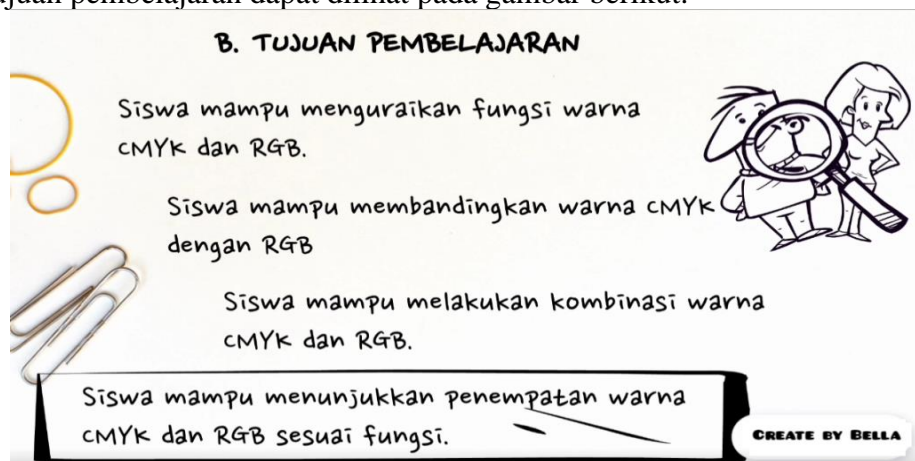 B. TUJUAN PEMBELAJARAN
Siswa mampu menguraikan fungsi warna
CMYK dan RGB.
Siswa mampu membandingkan warna CMYK
dengan RGB
Siswa mampu melakukan kombinasi warna
CMYK dan RGB.
Siswa mampu menunjukkan penempatan warna
CMYK dan RGB sesuai fungsi.
CREATE BY BELLA